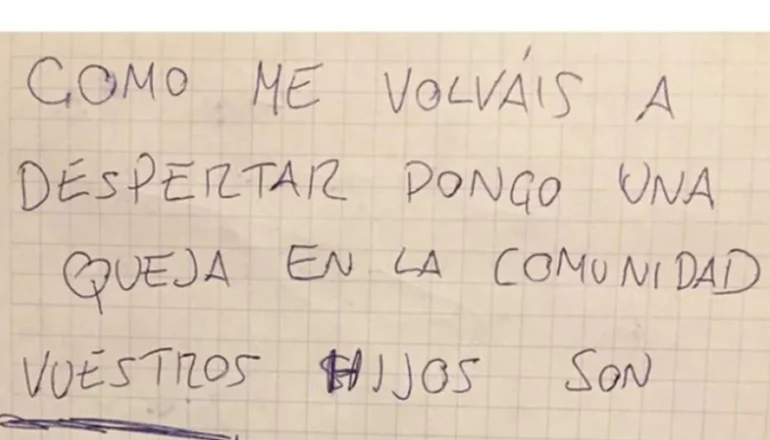 COMO ME VOLVÁIS A
DESPERTAR PONGO UNA
QUEJA EN LA COMUNIDAD
VUESTROS HIJOS SON